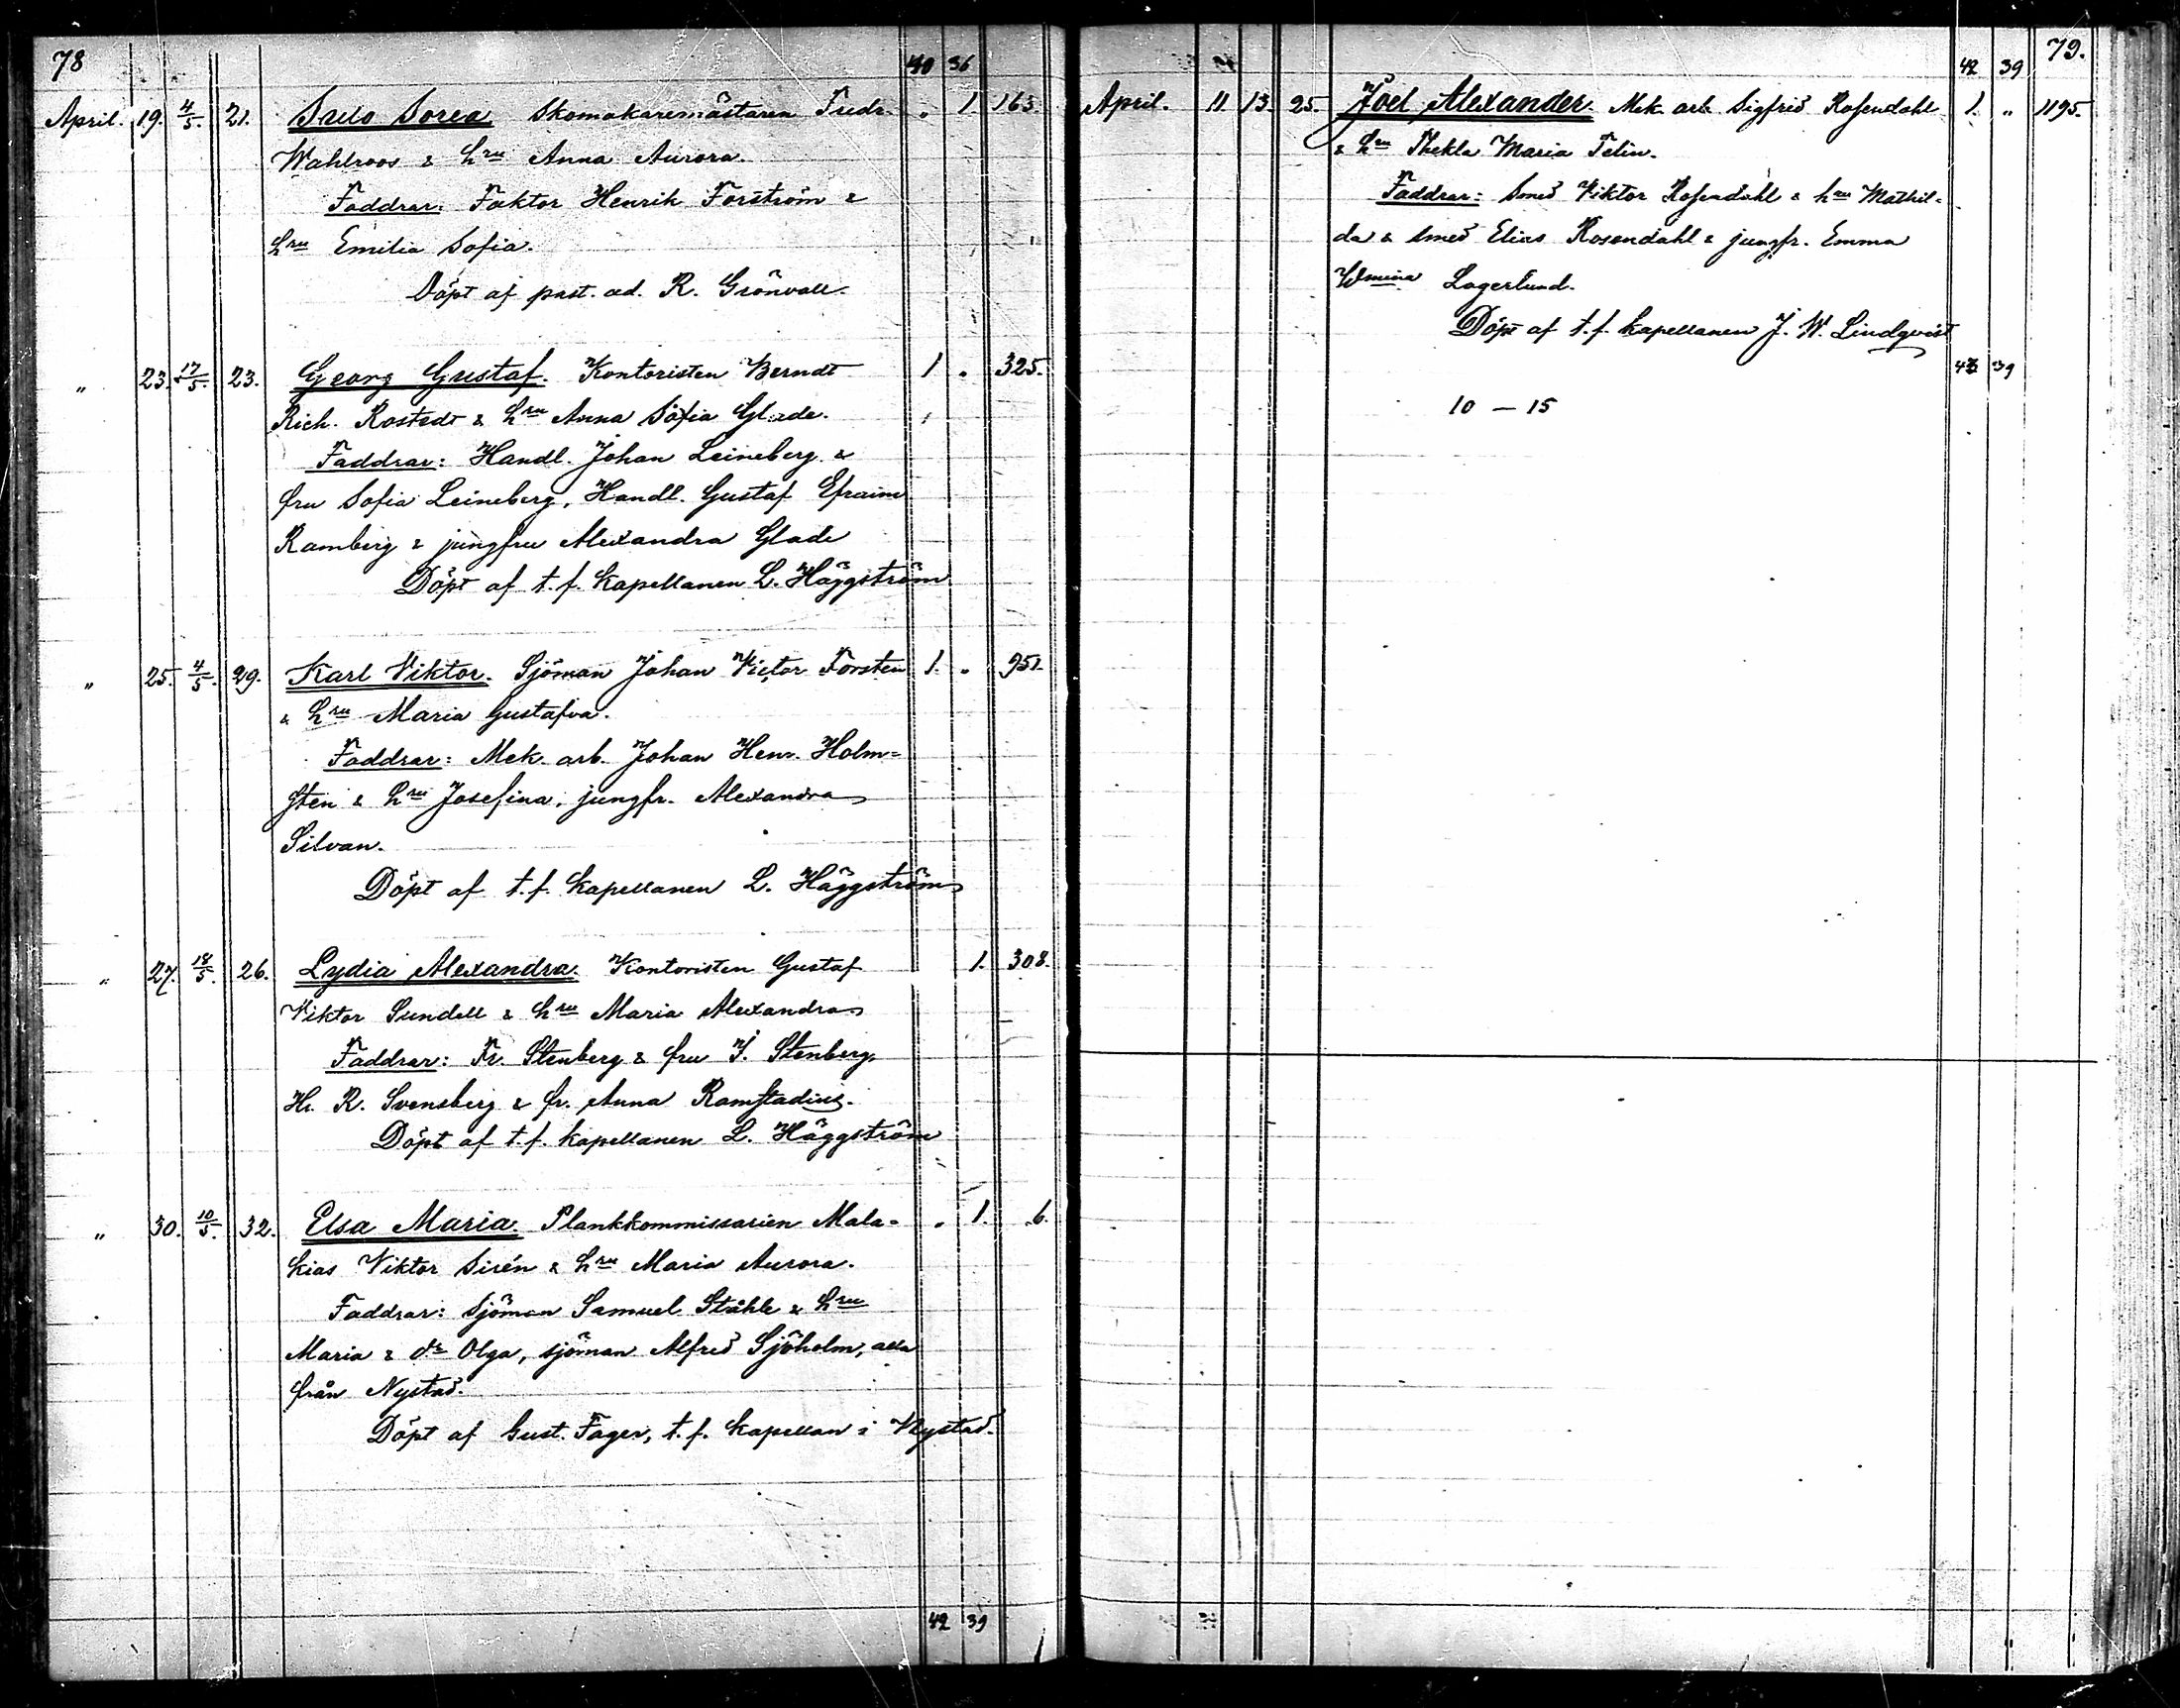 78
40 36
April. 19. 4/5. 21. Sorea Skomakaremästaren Fredr. " 1. 163.
Wahlroos & hru Anna Aurora.
Faddrar: Faktor Henrik Forström &
hru Emilia Sofia.
Döpt af past. ad. R. Grönvall.
" 23. 17/5. 23. Georg Gustaf. Kontoristen Berndt 1 " 325.
Rich. Rostedt & hru Anna Sofia Glade.
Faddrar: Handl. Johan Leineberg &
fru Sofia Leineberg, Handl. Gustaf Efraim
Ramberg & jungfru Alexandra Glade
Döpt af t.f. kapellanen L. Häggström
" 25. 4/5. 29. Karl Viktor. Sjöman Johan Victor Forsten 1. " 951.
& hru Maria Gustafva.
Faddrar: Mek. arb. Johan Henr. Holm=
sten & hru Josefina, jungfr. Alexandra
Silvan.
Döpt af t.f. kapellanen L. Häggström
" 27. 18/5. 26. Lydia Alexandra. Kontoristen Gustaf 1. 308.
Viktor Sundell & hru Maria Alexandra
Faddrar: Fr. Stenberg & fru J. Stenberg,
Hr. R. Svensberg & fr. Anna Ramstadius.
Döpt af t.f. kapellanen L. Häggström
" 30. 10/5. 32. Elsa Maria. Plankkommissarien Mala- " 1. 6.
kias Viktor Sirén & hru Maria Aurora.
Faddrar: Sjöman Samuel Ståhle & hru
Maria & dr Olga, sjöman Alfred Sjöholm, alla
från Nystad.
Döpt af Gust. Fager, t.f. kapellan i Nystad.
42 39
79.
42 39
April. 11 13. 25. Joel Alexander. Mek. arb. Sigfrid Rosendahl 1. " 1195.
& hru Thekla Maria Felin.
Faddrar: Smed Viktor Rosendahl & hru Mathil=
da & smed Elias Rosendahl & jungfr. Emma
Wmina Lagerlund.
Döpt af t.f. kapellanen J. W. Lindqvist
43 39
10 — 15